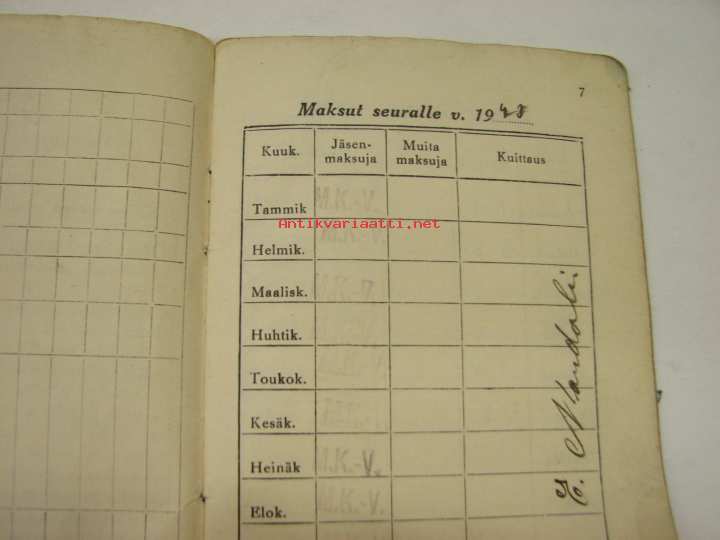 7
Maksut seuralle v. 1948
Kuuk. Jäsen-maksuja Muita maksuja Kuittaus
Tammik M.K.-V.
Antikvariaatti.net
Helmik.
Maalisk.
Huhtik.
Toukok.
Kesäk.
Heinäk M.K.-V.
Elok. M.K.-V.